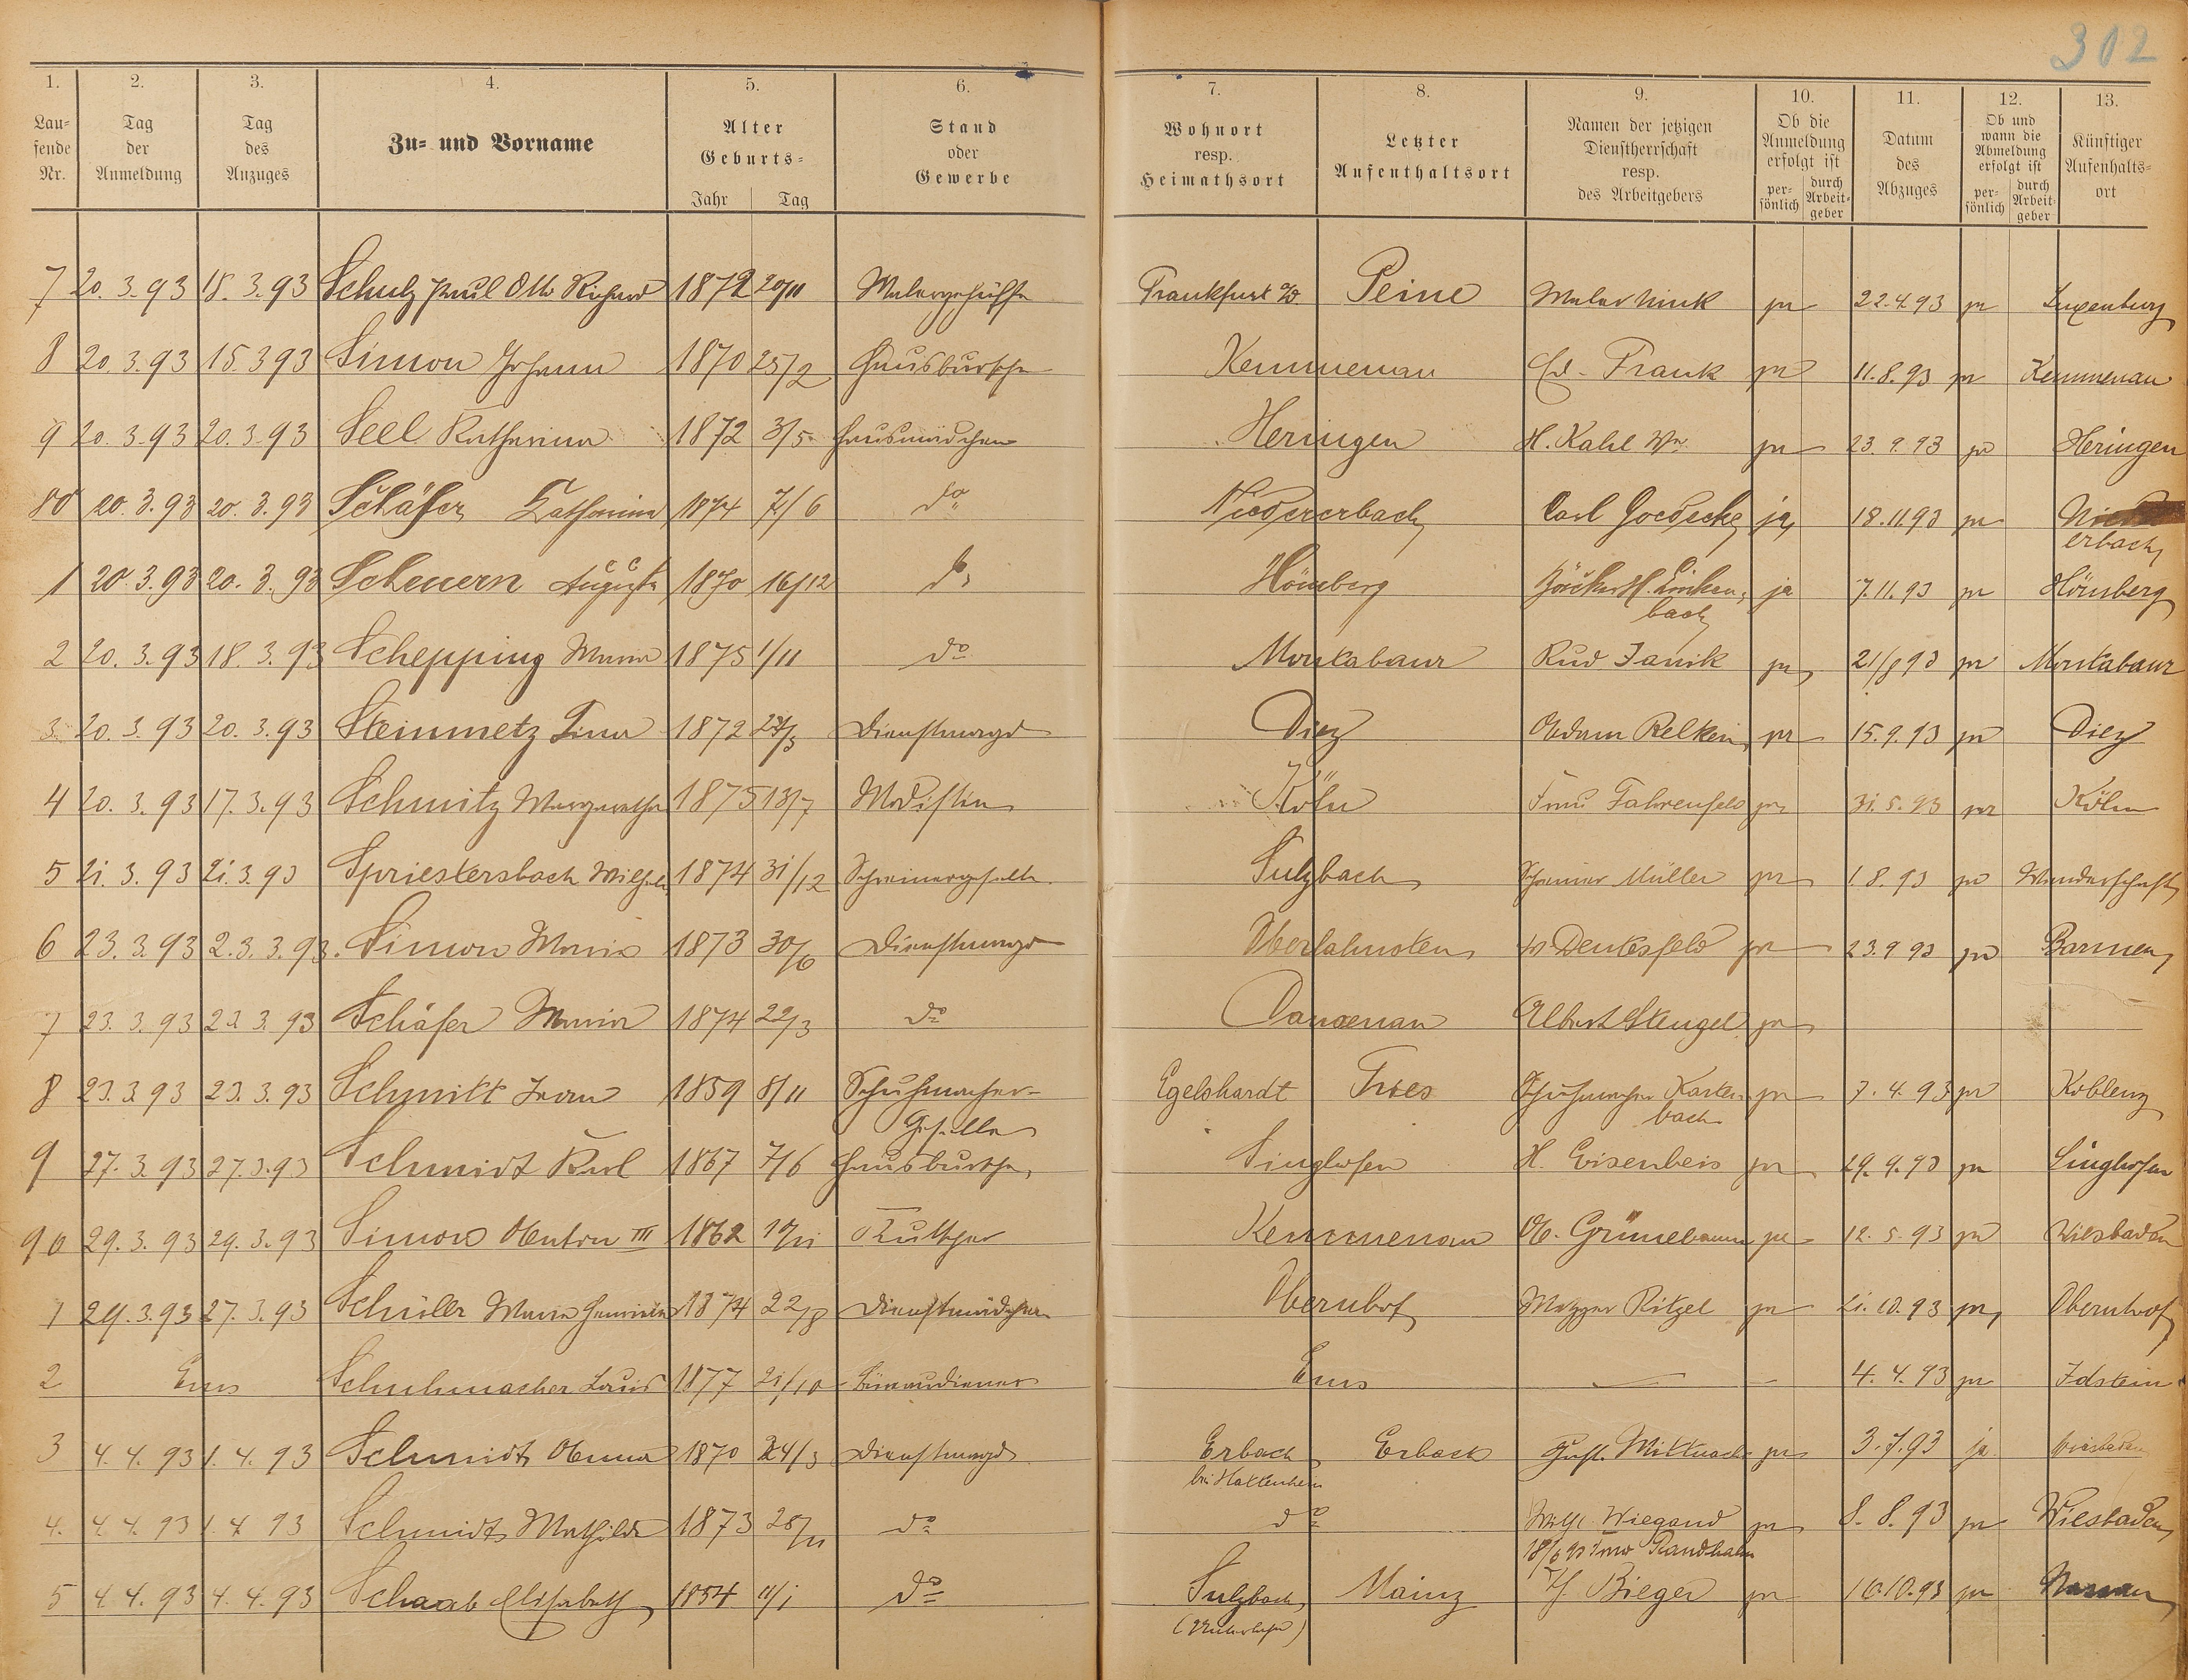 302
1. 2. 3. 4. 5. 6. 7. 8. 9. 10. 11. 12. 13.
Lau-
fende
Nr.
Tag
der
Anmeldung
Tag
des
Anzuges
Zu- und Vorname
Alter
Geburts-
Jahr Tag
Stand
oder
Gewerbe
Wohnort
resp.
Heimathsort
Letzter
Aufenthaltsort
Namen der jetzigen
Dienstherrschaft
resp.
des Arbeitgebers
Ob die
Anmeldung
erfolgt ist
per-
sönlich
durch
Arbeit-
geber
Datum
des
Abzuges
Ob und
wann die
Abmeldung
erfolgt ist
per-
sönlich
durch
Arbeit-
geber
Künftiger
Aufenthalts-
ort
7 20. 3. 93 18. 3. 93 Schulz Paul Otto Richard 1872 20/11 Malergehülfe Frankfurt a/O Peine Maler Nink ja 22.4.93 ja Luxenburg
8 20. 3. 93 15. 3 93 Simon Johann 1870 25/2 Hausbursche Kemmenau Ed. Frank ja 11.8.93 ja Kemmenau
9 20. 3. 93 20. 3. 93 Seel Katharina 1872 3/5 Hausmädchen Heringen H. Kahl Ww. ja 23. 9. 93 ja Heringen
80 20. 3. 93 20. 3. 93 Schäfer Katharina 1874 7/6 do Niedererbach Carl Goedecke ja 18.11.93 ja Nieder
erbach
1 20. 3. 93 20. 3. 93 Scheuern Auguste 1870 16/12 do Hömberg Bäcker H. Linken-
bach ja 7.11.93 ja Hömberg
2 20. 3. 93 18. 3. 93 Schepping Maria 1875 1/11 do Montabaur Rud Janik ja 21/8 93 ja Montabaur
3 20. 3. 93 20. 3. 93 Steinmetz Lina 1872 27/3 Dienstmagd Diez Adam Relken ja 15.9.93 ja Diez
4 20. 3. 93 17. 3. 93 Schmitz Margaretha 1875 13/7 Modistin Köln Frau Fahrenfeld ja 31. 5. 93 ja Köln
5 21. 3. 93 21. 3. 93 Spriestersbach Wilhelm 1874 31/12 Schreinergeselle Sulzbach Schreiner Müller ja 1. 8. 93 ja Wanderschaft
6 23. 3. 93 23. 3. 93. Simon Maria 1873 30/6 Dienstmagd Oberlahnstein Denkesfeld ja 23. 9 93 ja Barmen
7 23. 3. 93 23 3. 93 Schäfer Maria 1874 22/3 do Dausenau Albert Stengel ja
8 23. 3 93 23. 3. 93 Schmitt Jean 1859 8/11 Schuhmacher-
Geselle Egelshardt Trees Schuhmacher Karten-
bach ja 7. 4. 93 ja Koblenz
9 27. 3. 93 27. 3. 93 Schmidt Karl 1867 7/6 Hausbursche Singhofen H. Eisenbeis ja 29. 9. 93 ja Singhofen
90 29. 3. 93 29. 3. 93 Simon Anton III 1862 10/11 Kutscher Kemmenau A. Grünebaum ja 12. 5. 93 ja Wiesbaden
1 29. 3. 93 27. 3. 93 Schüler Maria Henriette 1874 22/8 Dienstmädchen Obernhof Metzger Ritzel ja 21. 10. 93 ja Obernhof
2 Ems Schuhmacher Louis 1877 21/10 Büreaudiener Ems — — 4. 4. 93 ja Idstein
3 4. 4. 93 1. 4. 93 Schmidt Anna 1870 24/3 Dienstmagd Erbach
bei Hattenheim Erbach Gust. Mittnacht ja 3. 7. 93 ja Wiesbaden
4. 4. 4. 93 1. 4 93 Schmidt Mathilde 1873 28/11 do do Wilh. Wiegand
18/6 93 Frau Randhahn ja 8. 8. 93 ja Wiesbaden
5 4. 4. 93 4. 4. 93 Schaab Elisabeth 1854 11/1 do Sulzbach Mainz Bieger ja 16.10.93 ja Nassau